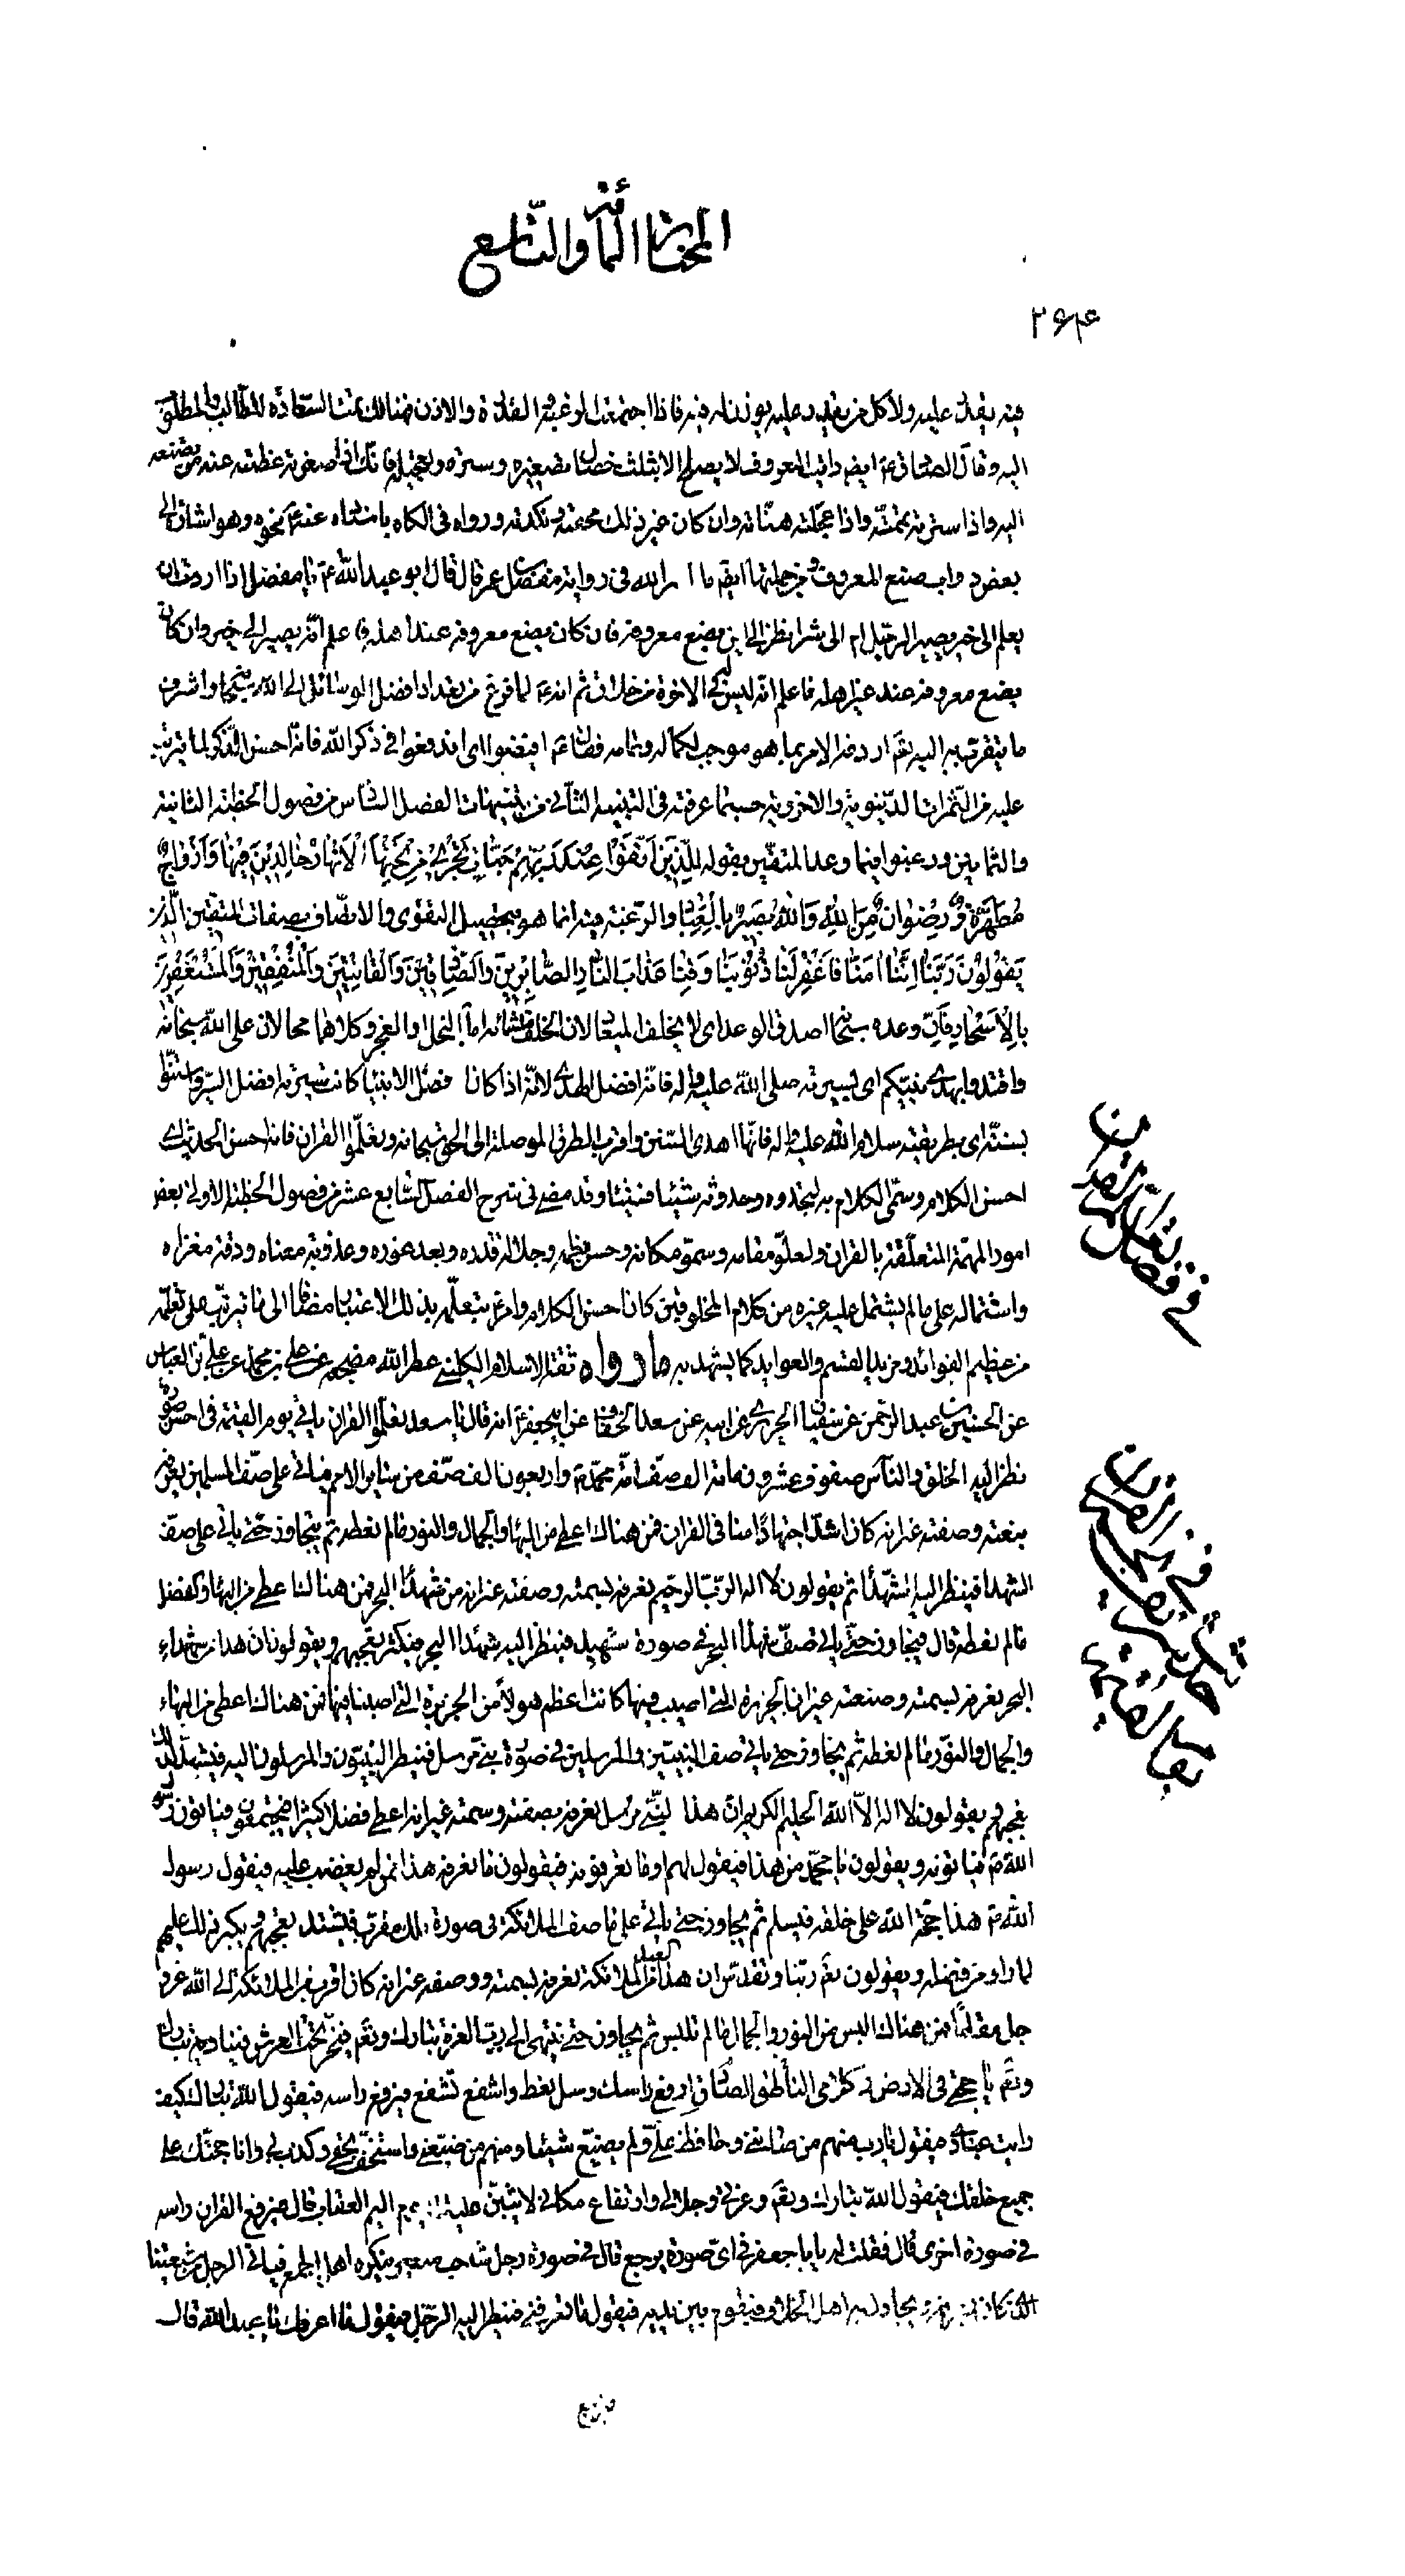 المختار المأة والتاسع
۲۶۴
فيه يقدر عليه ولا كل من يقدر عليه يوذن له فيه فاذا اجتمعت الرغبة والقدرة والاذن فهنالك تمت السعادة للطالب والمطلوب
اليه وقال الصادق ع ايضا رايت المعروف لا يصلح الا بثلث خصال تصغيره وستره وتعجيله فانك اذا صغرته عظمته عند من تصنعه
اليه واذا سترته تممته واذا عجلته هناته وان كان غير ذلك محقته ونكدته ورواه في الكافي باسناده عنه ع نحوه وهو اشارة الى
بعض اداب صنع المعروف ومن جملتها ايضا ما رواه في رواية مفضل بن عمر قال قال ابو عبد الله ع يا مفضل اذا اردت ان
تعلم الى خير يصير الرجل ام الى شر انظر الى اين يضع معروفه فان كان يضع معروفه عند اهله فاعلم انه يصير الى خير وان كان
يضع معروفه عند غير اهله فاعلم انه ليس له في الاخرة من خلاق ثم انه ع لما فرغ من تعداد افضل الوسائل الى الله سبحانه واشرف
ما يتقرب به اليه تعالى اردفه الامر بما هو موجب لكماله وتمامه فقال ع افيضوا اى اندفعوا في ذكر الله فانه احسن الذكر لما يترتب
عليه من الثمرات الدنيوية والاخروية حسبما عرفته في التنبيه الثاني من تنبيهات الفصل السادس من فصول الخطبة الثانية
والثمانين وارغبوا فيما وعد المتقين بقوله للَّذِينَ اتَّقَوْا عِنْدَ رَبِّهِمْ جَنَّاتٌ تَجْرِي مِنْ تَحْتِهَا الْأَنْهَارُ خَالِدِينَ فِيهَا وَأَزْوَاجٌ
مُطَهَّرَةٌ وَرِضْوَانٌ مِنَ اللهِ وَاللهُ بَصِيرٌ بِالْعِبَادِ والرغبة فيه انما هو بتحصيل التقوى والاتصاف بصفات المتقين الذين
يَقُولُونَ رَبَّنَا إِنَّنَا آمَنَّا فَاغْفِرْ لَنَا ذُنُوبَنَا وَقِنَا عَذَابَ النَّارِ الصَّابِرِينَ وَالصَّادِقِينَ وَالْقَانِتِينَ وَالْمُنْفِقِينَ وَالْمُسْتَغْفِرِينَ
بِالْأَسْحَارِ فان وعده سبحانه اصدق الوعد اى لا يخلف الميعاد لان الخلف منشائه اما البخل او العجز وكلاهما محالان على الله سبحانه
واقتدوا بهدى نبيكم اى بسيرته صلى الله عليه واله فانه افضل الهدى لانه اذا كان افضل الانبيا كانت سيرته افضل السير واستنوا
بسنته اى بطريقته سلام الله عليه واله فانها اهدى السنن واقرب الطرق الموصلة الى الحق سبحانه وتعلموا القران فانه احسن الحديث اى
احسن الكلام وسمى الكلام به لتجدده وحدوثه شيئا فشيئا وقد مضى في شرح الفصل السابع عشر من فصول الخطبة الاولى بعض
امور المهمة المتعلقة بالقران ولعلو مقامه وسمو مكانه وحسن نظمه وجلالة قدره وبعد غوره وعذوبة معناه ودقة مغزاه
واشتماله على ما لم يشتمل عليه غيره من كلام المخلوقين كان احسن الكلام وامر بتعلمه بذلك الاعتبار مضافا الى ما يترتب على تعلمه
من عظيم الفوائد ومزيد القسم والعوايد كما يشهد به ما رواه ثقة الاسلام الكليني عطر الله مضجعه عن علي بن محمد عن علي بن العباس
عن الحسين بن عبد الرحمن عن سفيان الحريرى عن ابيه عن سعد الخفاف عن ابي جعفر ع انه قال يا سعد تعلموا القران ياتي يوم القيمة في احسن صورة
نظر اليه الخلق والناس صفوف عشرون ومائة الف صف امة محمد ص واربعون الف صف من ساير الامم فياتي على صف المسلمين يعرف
بنعته وصفته غير انه كان اشد اجتهادا منا في القران فمن هناك اعطى من البهاء والجمال والنور ما لم نعطه ثم يتجاوز حتى ياتي على صف
الشهدا فينظر اليه الشهدا ثم يقولون لا اله الا الرب الرحيم نعرفه بسمته وصفته غير انه من شهدا البحر فمن هناك اعطى من البهاء والفضل
ما لم نعطه قال فيتجاوز حتى ياتي صف شهدا البحر في صورة شهيد فينظر اليه شهدا البحر فيكثر تعجبهم ويقولون ان هذا من شهداء
البحر نعرفه بسمته وصفته غير ان الجزيرة التي اصيب فيها كانت اعظم هولا من الجزيرة التي اصبنا فيها فمن هناك اعطى من البهاء
والجمال والنور ما لم نعطه ثم يجاوز حتى ياتي صف النبيين والمرسلين في صورة نبي مرسل فينظر النبيون والمرسلون اليه فيشتد لذلك
تعجبهم ويقولون لا اله الا الله الحليم الكريم ان هذا لنبي مرسل نعرفه بصفته وسمته غير انه اعطى فضلا كثيرا فيجتمعون فياتون رسول
الله ص فياتونه ويقولون يا محمد من هذا فيقول لهم او ما تعرفونه فيقولون ما نعرفه هذا ممن لم يغضب عليه فيقول رسول
الله ص هذا حجة الله على خلقه فيسلم ثم يجاوز حتى ياتي على صف الملائكة في صورة ملك مقرب فيشتد تعجبهم ويكبر ذلك عليهم
لما راو من فضله ويقولون تعالى ربنا وتقدس ان هذا العبد من الملائكة نعرفه بسمته وصفته غير انه كان اقرب الملائكة الى الله عز و
جل مقاما فمن هناك البس من النور والجمال ما لم نلبس ثم يجاوز حتى ينتهى الى رب العزة تبارك وتعالى فيخر تحت العرش فيناديه تبارك
وتعالى يا حجتي في الارض وكلامي الناطق الصادق ارفع راسك وسل تعط واشفع تشفع فيرفع راسه فيقول الله تبارك كيف
رايت عبادى فيقول يا رب منهم من صانني وحافظ علي ولم يضيع شيئا ومنهم من ضيعني واستخف بحقي وكذب بي وانا حجتك على
جميع خلقك فيقول الله تبارك وتعالى وعزتي وجلالي وارتفاع مكاني لاثيبن عليك اليم العقاب قال فيرفع القران راسه
في صورة اخرى قال فقلت له يا ابا جعفر في اى صورة يرجع قال في صورة رجل شاحب متغير ينكره اهل الجمع فياتي الرجل من شيعتنا
الذى كان يعرفه يجادل به اهل الخلاف فيقوم بين يديه فيقول ما تعرفني فينظر اليه الرجل فيقول ما اعرفك يا عبد الله قال
فيرجع
في تعلم القران
في فضل القران
حديث في القران
يوم القيمة